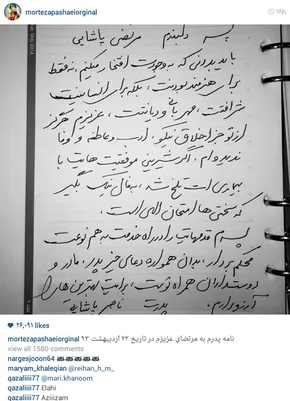 mortezapashaeiorginal
پسر دلبندم مرتضی پاشایی
باید بدونی که به وجودت افتخار میکنم، نه فقط
برای هنرمند بودنت، بلکه برای انسانیت
شرافتت، مهربانی و دیانتت، عزیزم هرگز
از تو جز اخلاق نیکو، ادب و عاطفه و وفا
ندیده ام، اگر شیرینی موفقیت هایت با
بیماری ات تلخ شد، به فال نیک بگیر
که سختی ها امتحان الهی است.
پسرم قدمهایت را در راه خدمت به هم نوعت
محکم بردار، بدان همواره دعای خیر پدر، مادر و
دوستداران همراه توست، برایت بهترین ها را
آرزو دارم. پدرت ناصر پاشایی
26,091 likes
mortezapashaeiorginal نامه پدرم به مرتضای عزیزم در تاریخ ۲۳ اردیبهشت ۹۳
view all 1580 comments
nargesjooon64
maryam_khaleqian @reihan_h_m_
qazaliiii77 @mari.khanoom
qazaliiii77 Elahi
qazaliiii77 Aziiizam